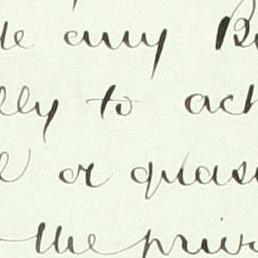 de any B
lly to ach
e or quas
the priv